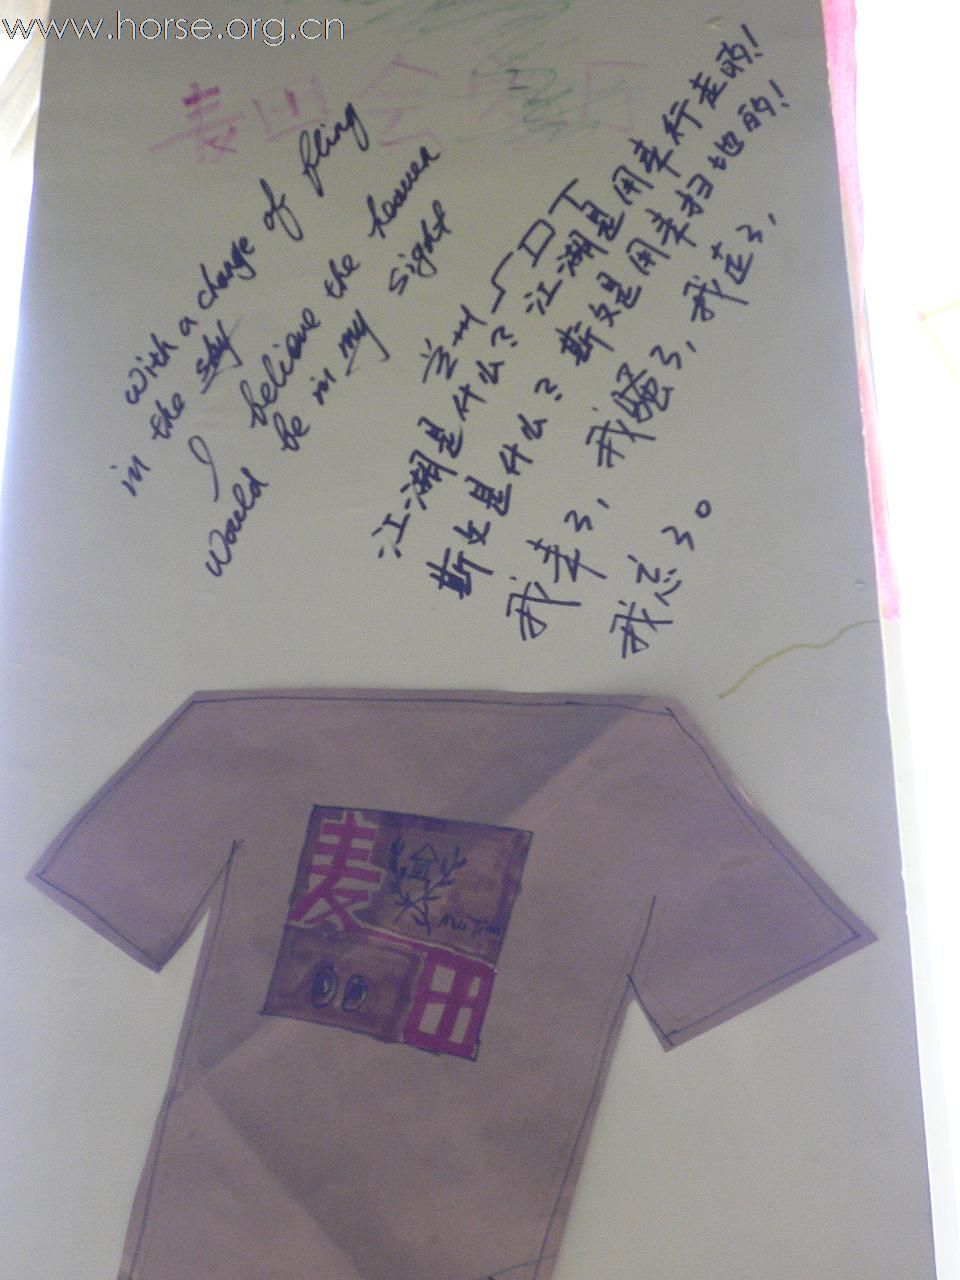 www.horse.org.cn
麦田会
with a change of fling
in the sky
I believe the heaven
would be in my sight
江湖是什么？江湖是用来行走的！
斯文是什么？斯文是用来扫地的！
我来了，我骚了，我走了，
我忘了。
麦
田